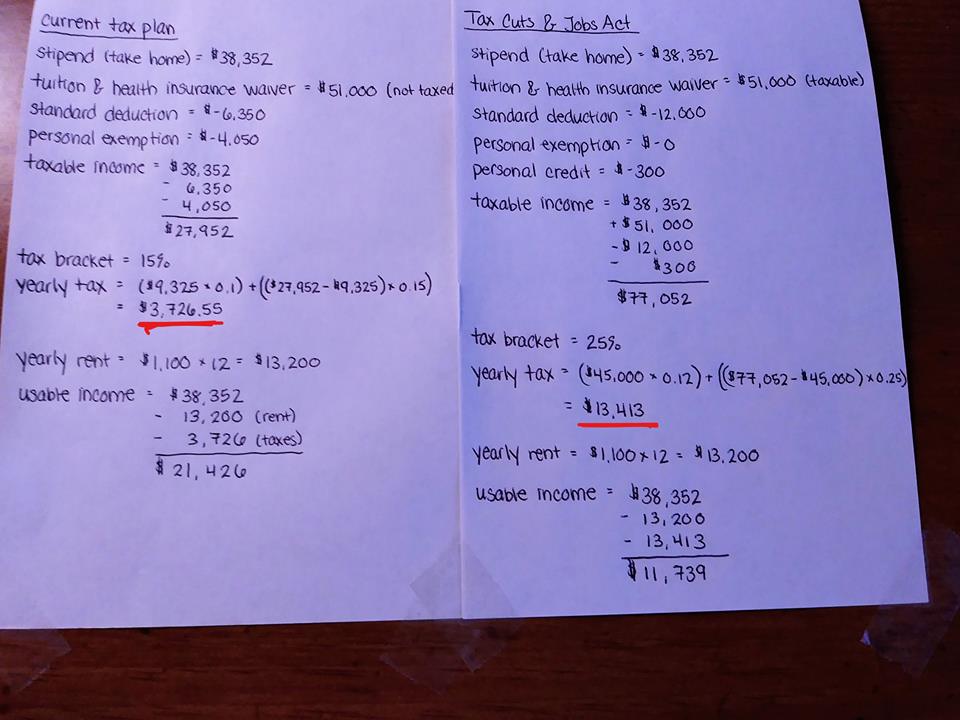 Current tax plan
stipend (take home) = $38,352
tuition & health insurance waiver = $51,000 (not taxed
standard deduction = $-6,350
personal exemption = $-4,050
taxable income = $38,352
- 6,350
- 4,050
$27,952
tax bracket = 15%
yearly tax = ($9,325 × 0.1) + (($27,952 - $9,325) × 0.15)
= $3,726.55
yearly rent = $1,100 × 12 = $13,200
usable income = $38,352
- 13,200 (rent)
- 3,726 (taxes)
$21,426
Tax Cuts & Jobs Act
stipend (take home) = $38,352
tuition & health insurance waiver = $51,000 (taxable)
standard deduction = $-12,000
personal exemption = $-0
personal credit = $-300
taxable income = $38,352
+ $51,000
- $12,000
- $300
$77,052
tax bracket = 25%
yearly tax = ($45,000 × 0.12) + (($77,052 - $45,000) × 0.25)
= $13,413
yearly rent = $1,100 × 12 = $13,200
usable income = $38,352
- 13,200
- 13,413
$11,739